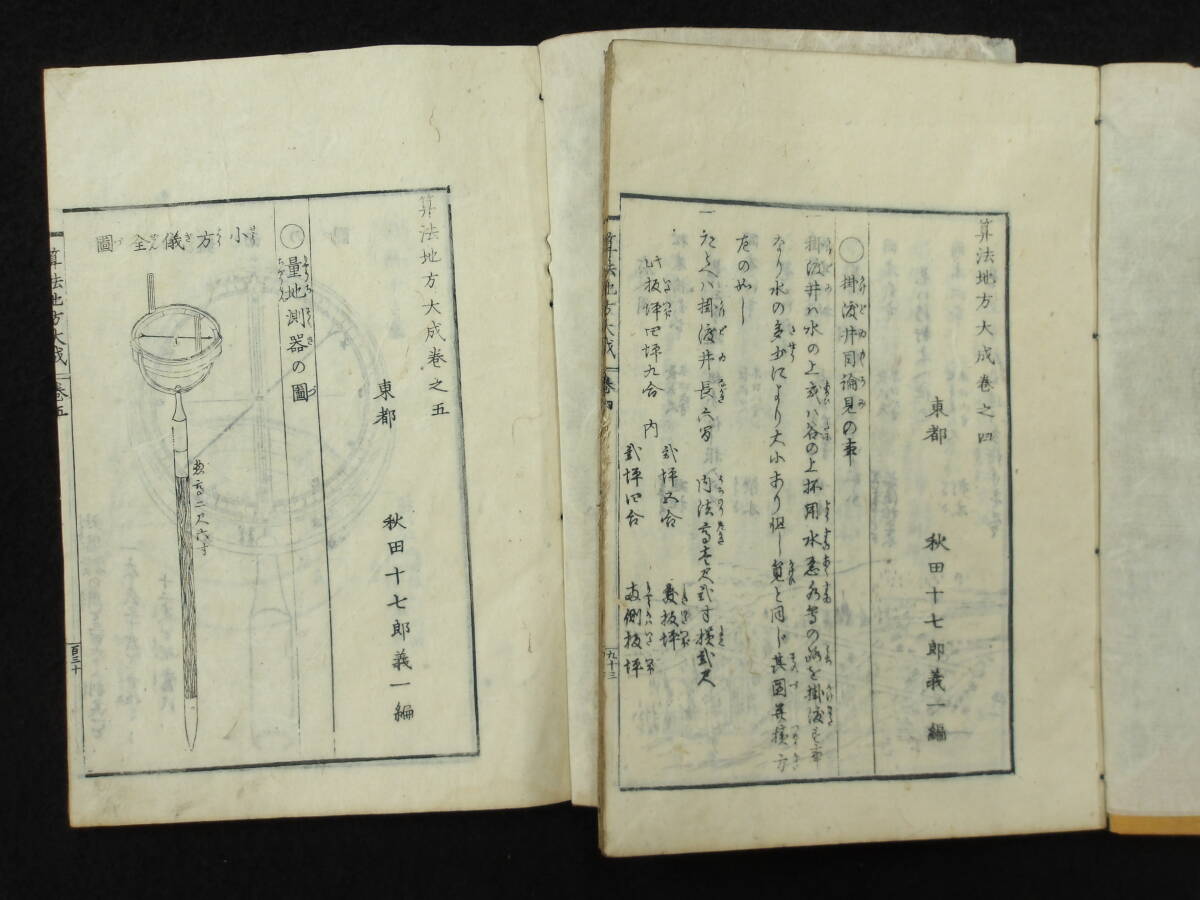 算法地方大成卷之四
東都 秋田十七郎義一編
○掛渡井目論見の事
一掛渡井ハ水の上或ハ谷の上抔用水悪水等の路を掛渡す事
なり水の多少により大小あり但し筧と同し其圖并積方
左のめし
一たとへハ掛渡井長六間 内法高壱尺弐寸横弐尺
此板坪四坪九合 内
弐坪五合 敷板坪
弐坪四合 両側板坪
算法地方大成 卷四
九十三
算法地方大成卷之五
東都 秋田十七郎義一編
○量地測器の圖
小方儀全圖
惣高二尺六寸
算法地方大成 卷五
百三十